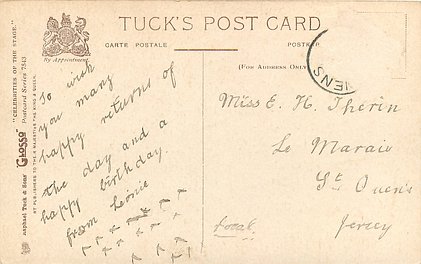 TUCK'S POST CARD
CARTE POSTALE
POSTK
By Appointment.
(FOR ADDRESS ONLY
ENS
Raphael Tuck & Sons' "GLOSSO" "CELEBRITIES OF THE STAGE."
Postcard Series 7343
ART PUBLISHERS TO THEIR MAJESTIES THE KING & QUEEN.
To wish
you many
happy returns of
the day and a
happy birthday.
from Leonie
Miss E. H. Therin
Le Marais
St Ouen's
Local.
Jersey